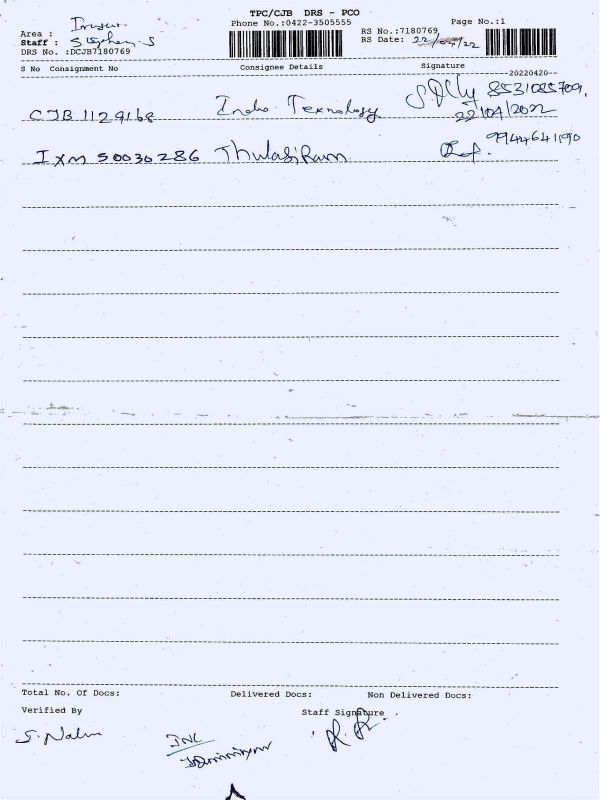 TPC/CJB DRS - PCO
Phone No.:0422-3505555
Page No.:1
Area :
Staff : S
DRS No. :DCJB7180769
RS No.:7180769
RS Date: 22/04/22
S No Consignment No Consignee Details Signature
--20220420--
CJB 1129168 Indo Texnology 8531085709,
22/04/2022
IXM 50030286 Thulasi Ram 9944641190
Total No. Of Docs: Delivered Docs: Non Delivered Docs:
Verified By Staff Signature .
S. Nalini